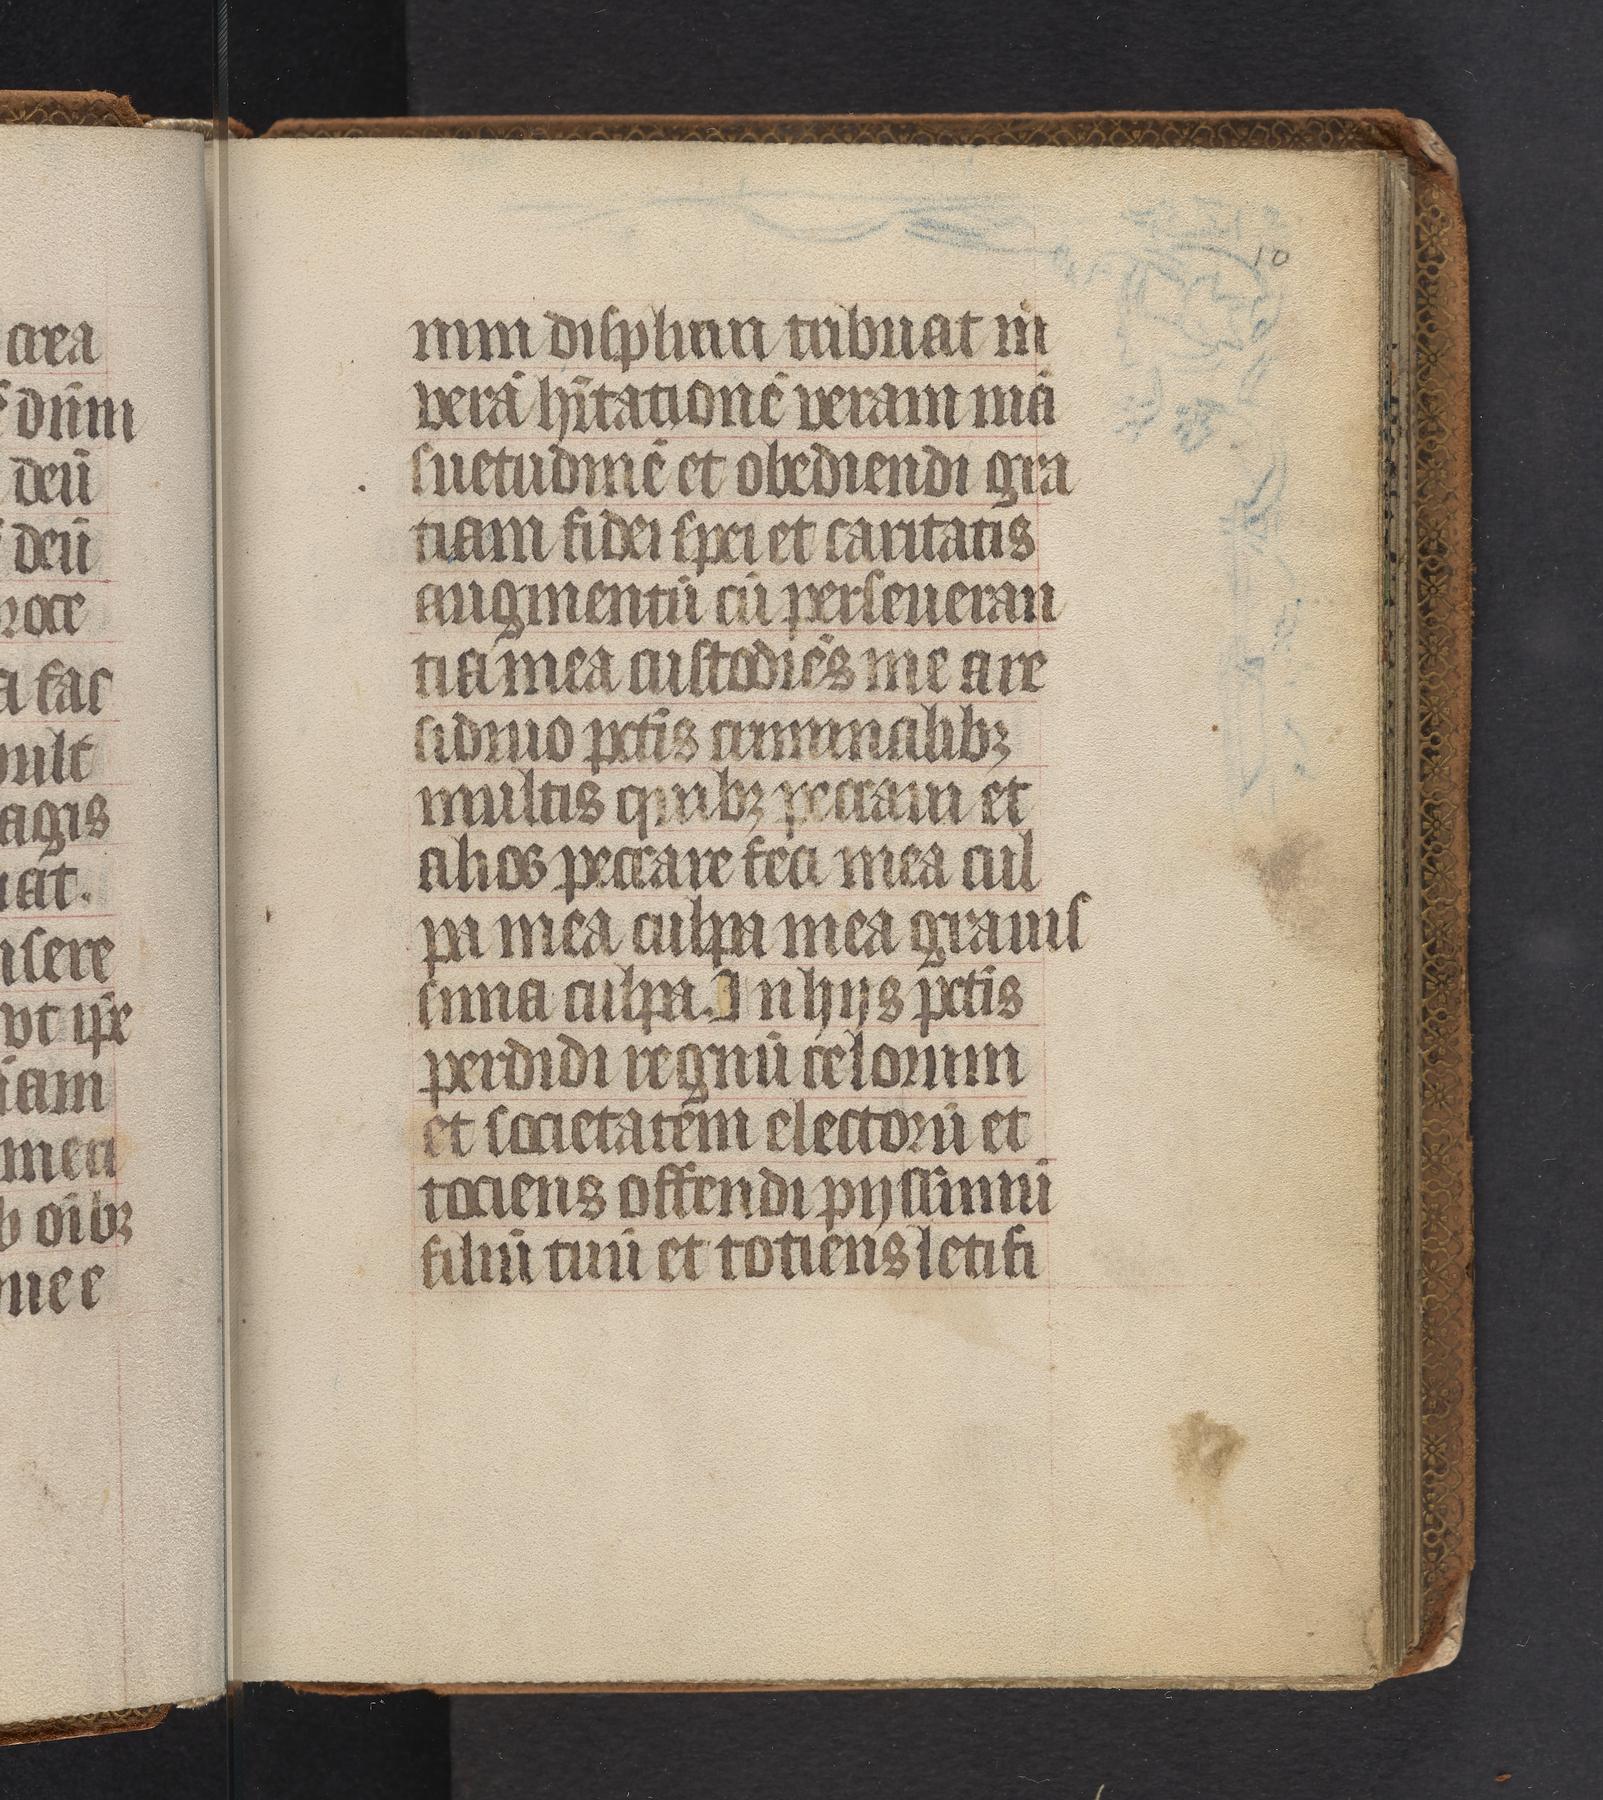 10
crea
dn̄m
deū
deū
noce
a fac
mult
agis
uat.
nsere
vt ip̄e
iam
mea
b oībꝫ
nee
mini disiplinā tribuat m̄
verā hūtationē veram mā
suetudinē et obediendi gra
tiam fidei spei et caritatis
augmentū cū perseueran
tia mea custodiēs me a re
sidiuo pctīs criminalibꝫ
multis quibꝫ peccaui et
alios peccare feci mea cul
pa mea culpa mea grauis
sima culpa. In hijs pctīs
perdidi regnū celorum
et societatem electorū et
tociens offendi pijssimū
filiū tuū et totiens letifi